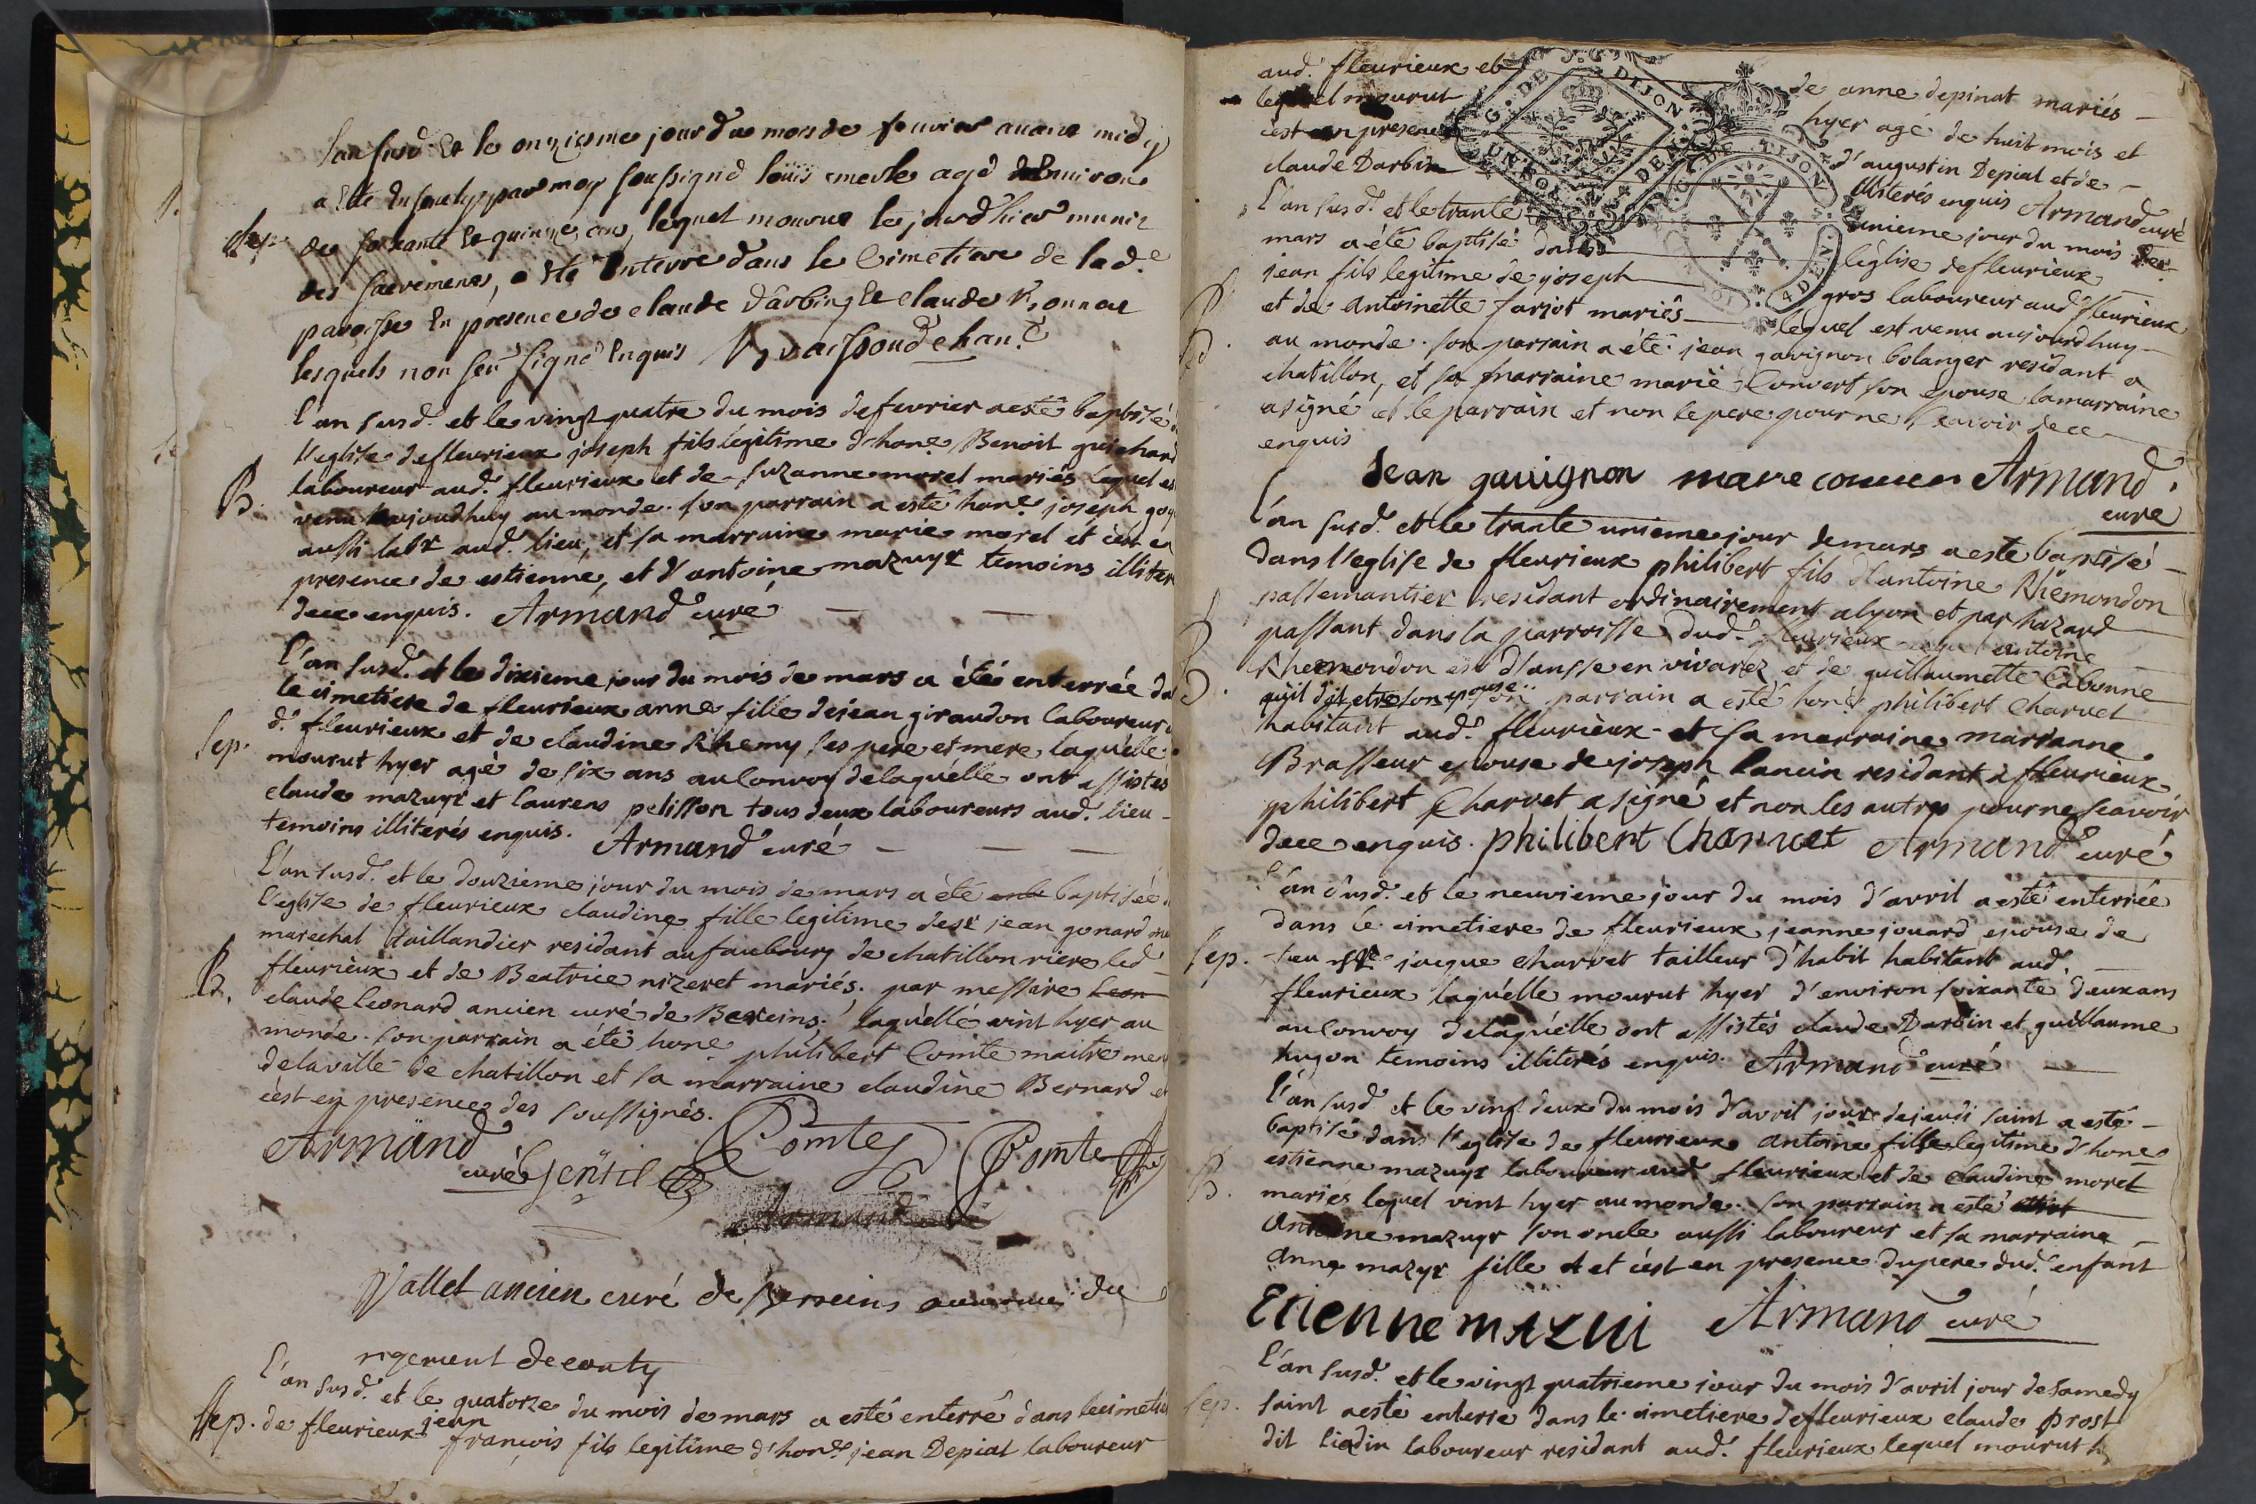 l'an susd. et le onziesme jour du mois de fevrier avant midy
a este ensevely par moy soussigné loüis merle agé denviron
sep. de soixante et quinze ans, lequel mourut le jourd'hier munit
des sacremens, a esté enterré dans le Cimetiere de lad.e
paroisse en presence de claude Darbin et claude
lesquels non sceu signé enquis
l'an susd. et le vingt quatre du mois de fevrier a esté baptisé
l'eglise de fleurieux joseph fils légitime d'hone. Benoit guichard
laboureur aud. fleurieux et de suzanne morel mariés lequel es
B. venu aujourdhuy au monde. son parrain a esté hone. joseph
aussi labr aud. lieu, et sa marraine marie morel et c'est en
presence de estienne, et d'antoine mazuyr temoins illiter
de ce enquis. Armand curé
l'an susd. et le dixieme jour du mois de mars a été enterrée da
le cimetiere de fleurieux anne fille de jean giraudon laboureur
sep. d. fleurieux et de claudine Rhemy ses pere et mere laquélle
mourut hyer agé de six ans au Convoy de laquélle ont assistés
claude mazuyr et laurens pelisson tous deux laboureurs aud. lieu
temoins illiterés enquis. Armand curé
l'an susd. et le douzieme jour du mois de mars a été baptisée
l'eglise de fleurieux claudine fille legitime de sr jean gonard
marechal taillandier residant au faubourg de chatillon riere led
B. fleurieux et de Beatrice nizeret mariés. par messire
claude leonard ancien curé de Bereins. laquéllé vint hyer au
monde. son parrain a été hone. philibert Comte maitre
de la ville de chatillon et sa marraine claudine Bernard et
c'est en presence des soussignés.
Armand curé Gentil Comte Comte
Armand
Vallet ancien curé de Berreins du
rigement de conty
l'an susd. et le quatorze du mois de mars a esté enterré dans le cimetie
sep. de fleurieux jean françois fils legitime d'hone. jean Depial laboureur
aud. fleurieux et de anne depinat mariés
lequel mourut hyer agé de huit mois et
c'est en presence d'augustin Depial et de
claude Darbin illiterés enquis Armand curé
G. DE DIJON. UN SOL 4 DEN.
G. DE DIJON 4 DEN.
L'an susd. et le trante unieme jour du mois de
mars a été baptisé dans l'église de fleurieux
jean fils legitime de joseph gros laboureur aud. fleurieux
B. et de Antoinette farjot mariés lequel est venu aujourdhuy
au monde. son parrain a été jean gavignon bolanger residant a
chatillon, et sa marraine marie Convert son epouse la marraine
a signé et le parrain et non le pere pour ne sçavoir de ce
enquis
Jean gauignon Armand
curé
l'an susd. et le trante unieme jour de mars a esté baptisé
dans l'eglise de fleurieux philibert fils d'antoine Rhemondon
passemantier residant ordinairement a lyon et par hazard
B. passant dans la parroisse dud. fleurieux antoine
Rhemondon est d'ansse en vivarez et de guillaumette Cabonne
qu'il dit etre son epouse. son parrain a esté hone. philibert Charvet
habitant aud. fleurieux et sa marraine marianne
Brasseur epouse de joseph lancin residant a fleurieux
philibert Charvet a signé et non les autres pour ne scavoir
de ce enquis. philibert Charvet Armand curé
l'an susd. et le neuvieme jour du mois d'avril a esté enterrée
dans le cimetiere de fleurieux jeanne jouard epouse de
sep. feu sr jacque Charvet tailleur d'habit habitant aud.
fleurieux laquélle mourut hyer d'environ soixante deux ans
au Convoy de laquélle ont assistés claude Darbin et guillaume
hugon temoins illiterés enquis. Armand curé
l'an susd. et le vingt deux du mois d'avril jour de jeudi saint a esté
baptisé dans l'eglise de fleurieux antoine fils legitime d'hone.
B. estienne mazuyr laboureur aud. fleurieux et de claudine morel
mariés lequel vint hyer au monde. son parrain a esté
Antoine mazuyr son oncle aussi laboureur et sa marraine
anne mazyr fille et c'est en presence du pere dud. enfant
Etienne mazui Armand curé
l'an susd. et le vingt quatrieme jour du mois d'avril jour de samedy
sep. saint a esté enterré dans le cimetiere de fleurieux claude prost
dit liadin laboureur residant aud. fleurieux lequel mourut h